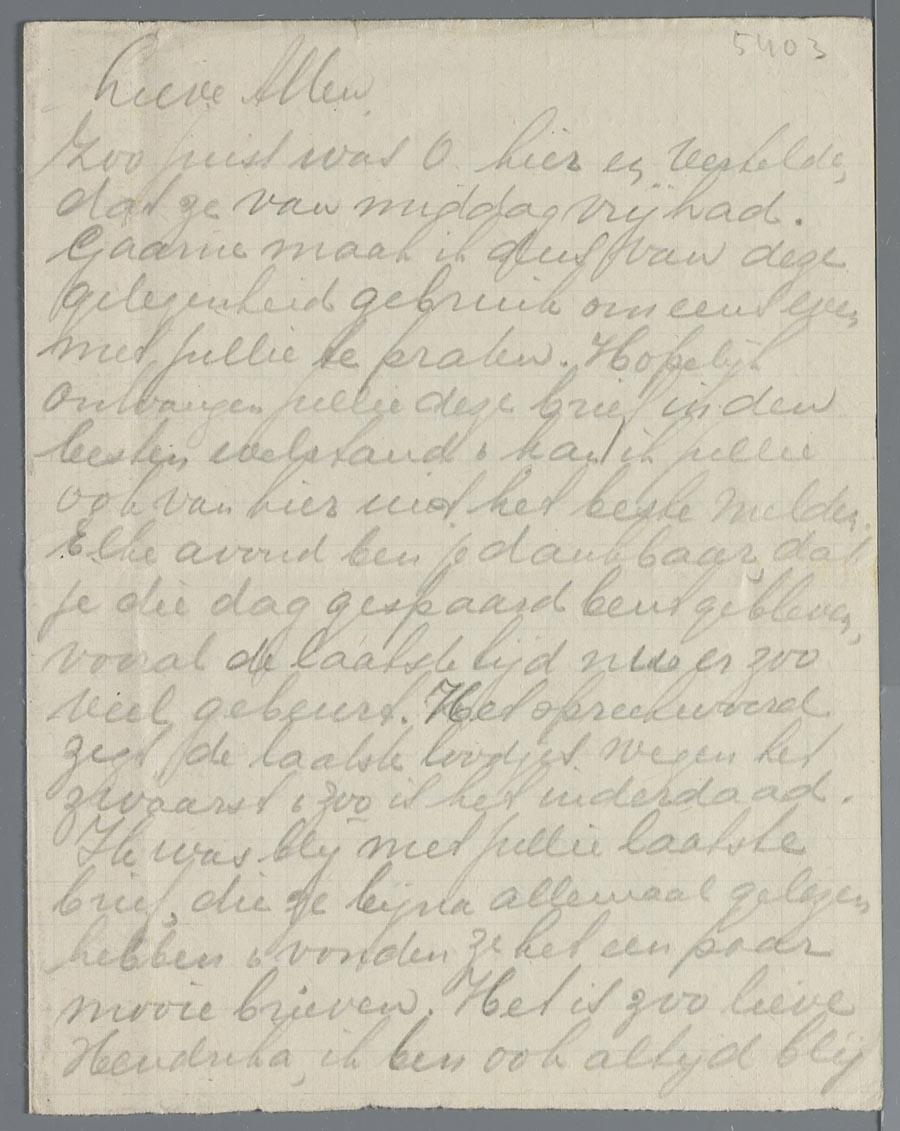 5403
Lieve Allen,
Zoo juist was O. hier en vertelde,
dat ze van middag vrij had.
Gaarne maak ik dus van deze
gelegenheid gebruik om eens even
met jullie te praten. Hopelijk
ontvangen jullie deze brief in den
besten welstand & kan ik jullie
ook van hier niet het beste melden.
Elke avond ben je dankbaar, dat
je die dag gespaard bent gebleven,
vooral de laatste tijd nu er zoo
veel gebeurt. Het spreekwoord
zegt, de laatste loodjes wegen het
zwaarst & zoo is het inderdaad.
Ik was blij met jullie laatste
brief, die ze bijna allemaal gelezen
hebben & vonden ze het een paar
mooie brieven. Het is zoo lieve
Hendrika, ik ben ook altijd blij